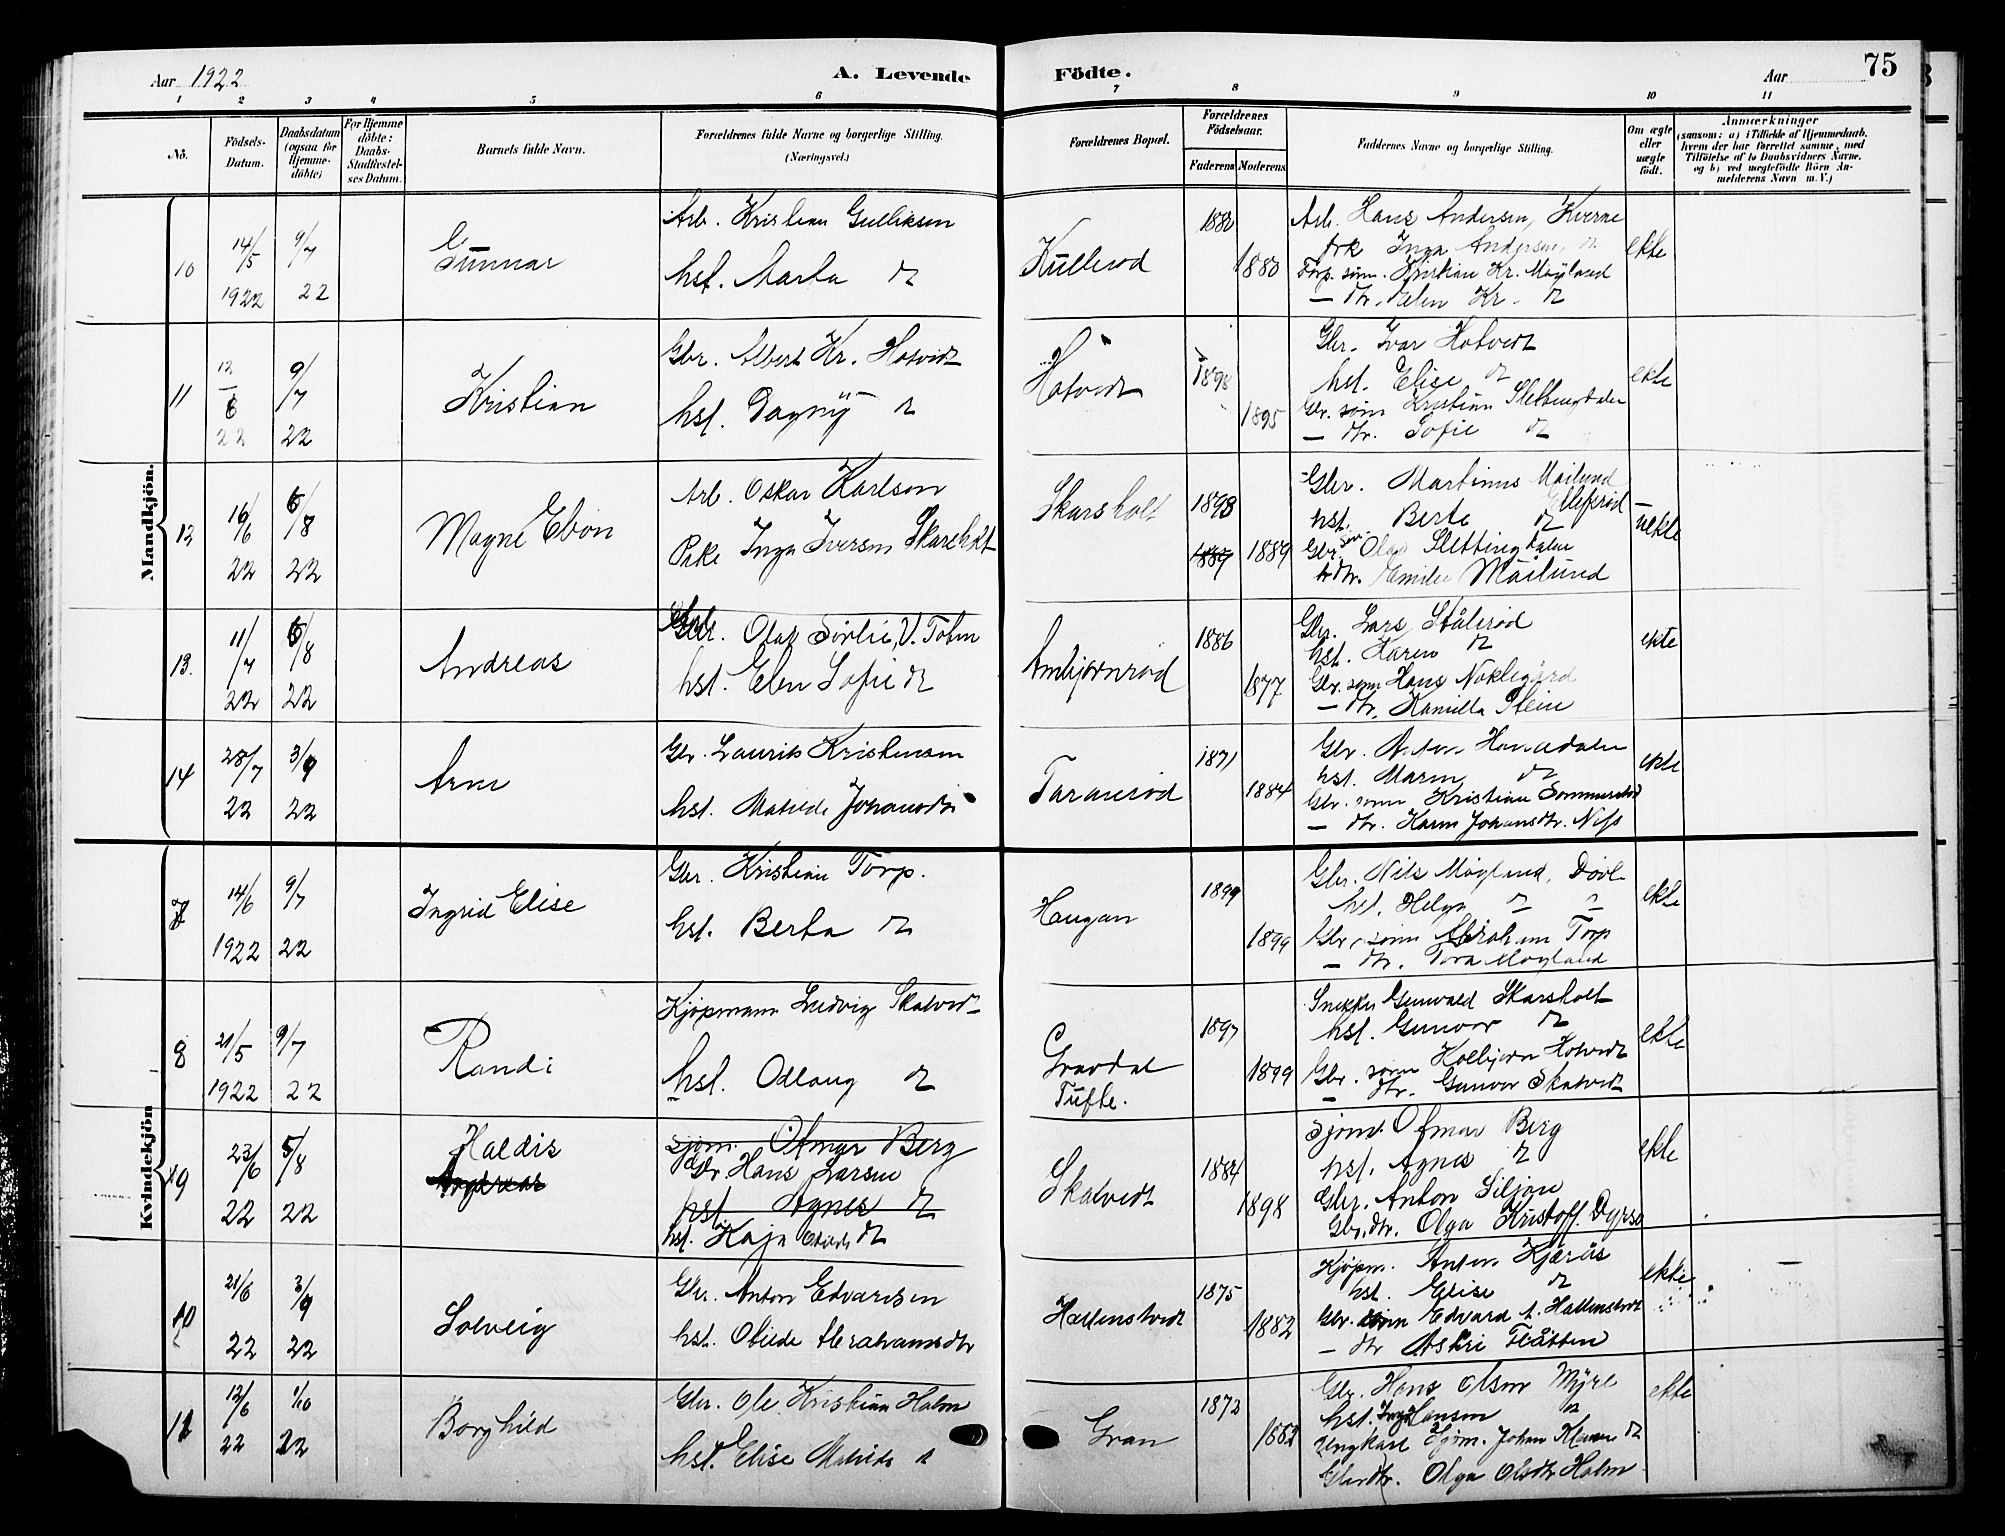 Aar 1922
A. Levende Födte.
Aar
75
1 2 3 4 5 6 7 8 9 10 11
No.
Födsels-
Datum.
Daabsdatum
(ogsaa for
Hjemme-
döbte)
For Hjemme
döbte:
Daabs-
Stadfæstel-
ses Datum.
Barnets fulde Navn.
Forældrenes fulde Navne og borgerlige Stilling.
(Næringsvei.)
Forældrenes Bopæl.
Forældrenes
Födselsaar.
Faderens Moderens
Faddernes Navne og borgerlige Stilling.
Om ægte
eller
uægte
födt.
Anmærkninger
(saasom: a) i Tilfælde af Hjemmedaab,
hvem der har forrettet samme, med
Tilföielse af to Daabsvidners Navne,
og b) ved uægtefödte Börn An-
melderens Navn m. V.)
Mandkjön.
10
14/5
1922
9/7
22
Gunnar
Arb. Kristian Gulliksen
hst. Marta do
Kullerød
1880
1880
Arb. Hans Andersen, Kverne
frk Inga Andersen, do
Forp. sønn. Kristian Kr. Møyland
— dtr. Elen Kr. do
ekte
11
12
6
22
9/7
22
Kristian
Gbr. Albert Kr. Hotvedt
hst. Dagny do
Hotvedt
1898
1895
Gbr. Ivar Hotvedt
hst. Elise do
Gbr. sønn Kristian Slettingdalen
— dtr. Sofie do
ekte
12
16/6
22
6/8
22
Magne Ebon
Arb. Oskar Karlson
Pike Inga Iversen Skarsholt
Skarsholt
1898
1889 1889
Gbr. Martinus Mailund
Ellefsrød
hst. Berte do
Gbr. søn. Olaf Slettingdalen
dtr. Emilie Mailund
uekte
13.
11/7
22
6/8
22
Andreas
Gbr. Olaf Sørlie, V. Tolm
hst. Elen Sofie do
Ambjørnrød
1886
1877
Gbr. Lars Stålerød
hst. Karen do
Gbr. sønn Hans Noklegård
— dtr. Kamilla Stein
ekte
14
28/7
22
3/9
22
Arne
Gbr. Laurits Kristensen
hst. Matilde Johansdtr
Taranrød
1871
1884
Gbr. Anton Hanedalen
hst. Maren do
Gbr. sønn Kristian Sommerstad
— dtr. Karen Johansdtr. Ness
ekte
Kvindekjön
7
14/6
1922
9/7
22
Ingrid Elise
Gbr. Kristian Torp.
hst. Berta do
Haugan
1899
1899
Gbr. Nils Møgland,
hst. Helga do
Gbr. sønn Abraham Torp
— dtr. Tora Møgland
ekte
8
21/5
1922
9/7
22
Randi
Kjøpmann Ludvig Skatvedt
hst. Odlaug do
Gravdal
Tufte.
1897
1899
Snekker Gunvald Skarsholt
hst. Gunvor do
Gbr. sønn Kolbjørn Hotvedt
— dtr. Gunvor Skatvedt
ekte
9
23/6
22
5/8
22
Haldis
Sjøm. Otmar Berg
Gbr. Hans Larsen
hst. Agnes do
hst. Kaja Otilde do
Skatvedt
1884
1898
Sjøm. Otmar Berg
hst. Agnes do
Gbr. Anton Siljan
Gbr. dtr. Olga Kristoff. Dyrsø
ekte
10
21/6
22
3/9
22
Solveig
Gbr. Anton Edvardsen
hst. Otilde Abrahamsdtr
Hallenstvedt
1875
1882
Kjøpm. Anton Kjærås
hst. Elise do
Gbr. sønn Edvard A. Hallenstvedt
— dtr Astri Flåtten
ekte
11
12/6
22
1/10
22
Borghild
Gbr. Ole Kristian Holm
hst. Elise Matilde do
Gran
1872
1882
Gbr. Hans Olsen Myre
hst. Inga Hansen do
Ungkarl Sjøm. Johan Klausen do
Gbrdtr. Olga Olsdtr Holm
ekte